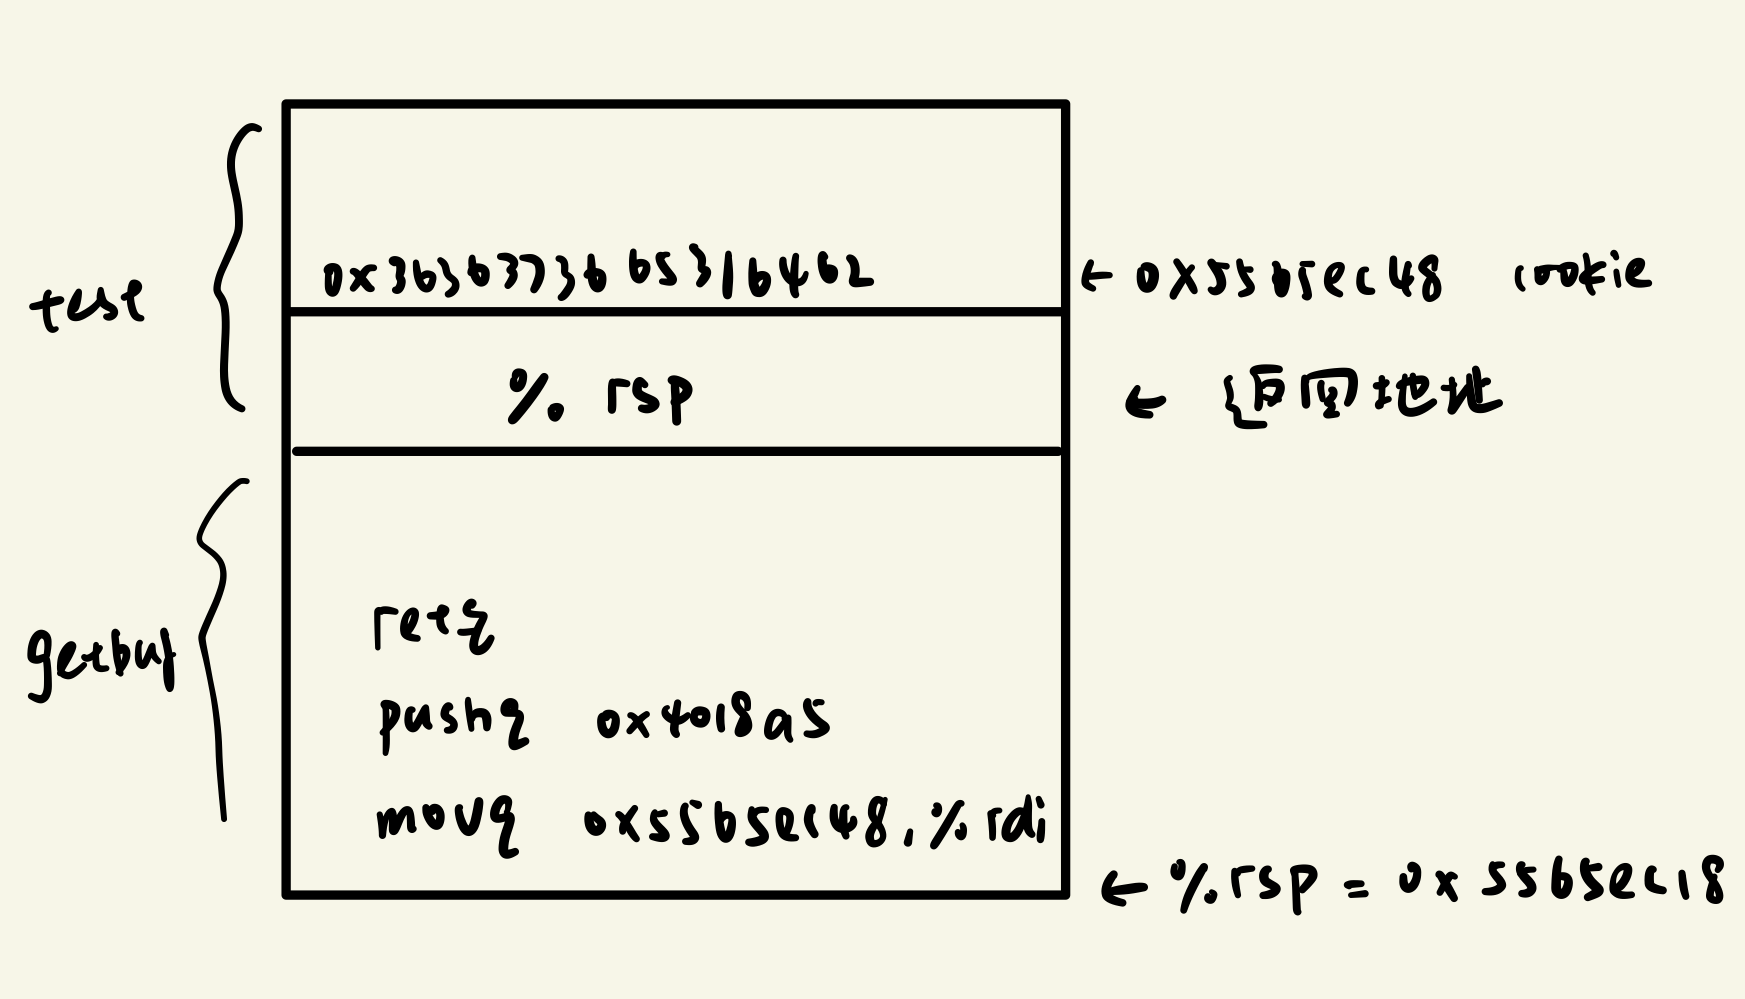 0x3636373665316462
← 0x5565ec48 cookie
test
%rsp
← 返回地址
getbuf
retq
pushq 0x4018a5
movq 0x5565ec48,%rdi
← %rsp = 0x5565ec18